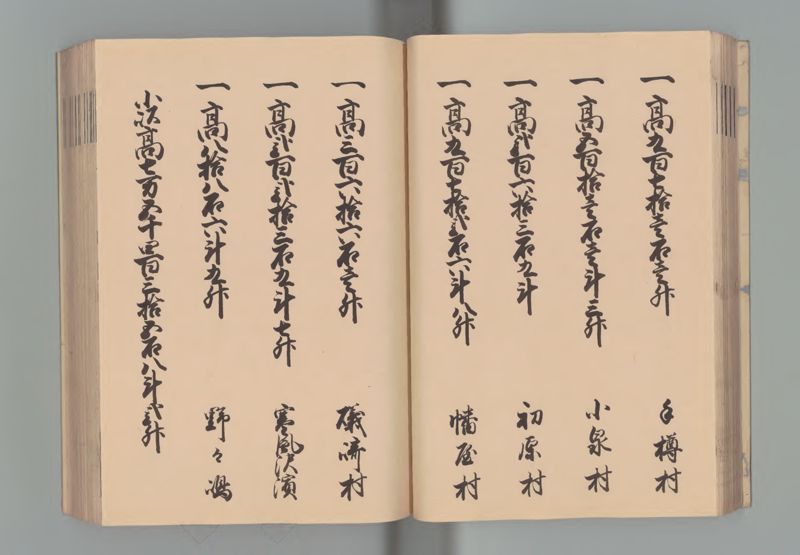 一高九百七拾壱石壱升 手樽村
一高五百拾壱石壱斗三升 小泉村
一高弐百六拾三石九斗 初原村
一高九百七拾弐石六斗八升 幡屋村
一高三百六拾六石壱升 磯崎村
一高弐百弐拾三石九斗七升 寒風沢濱
一高八拾八石六斗九升 野々嶋
小以高七万五千四百三拾五石八斗弐升